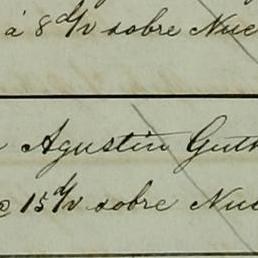 á 8 d/v sobre Nue
Agustin Gutı
15 d/v sobre Nue